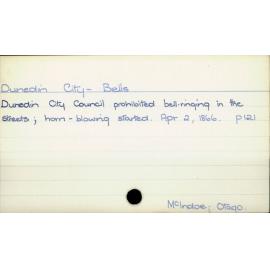 Dunedin City - Bells
Dunedin City Council prohibited bell-ringing in the
streets; horn-blowing started. Apr 2, 1866. p121
McIndoe; Otago.